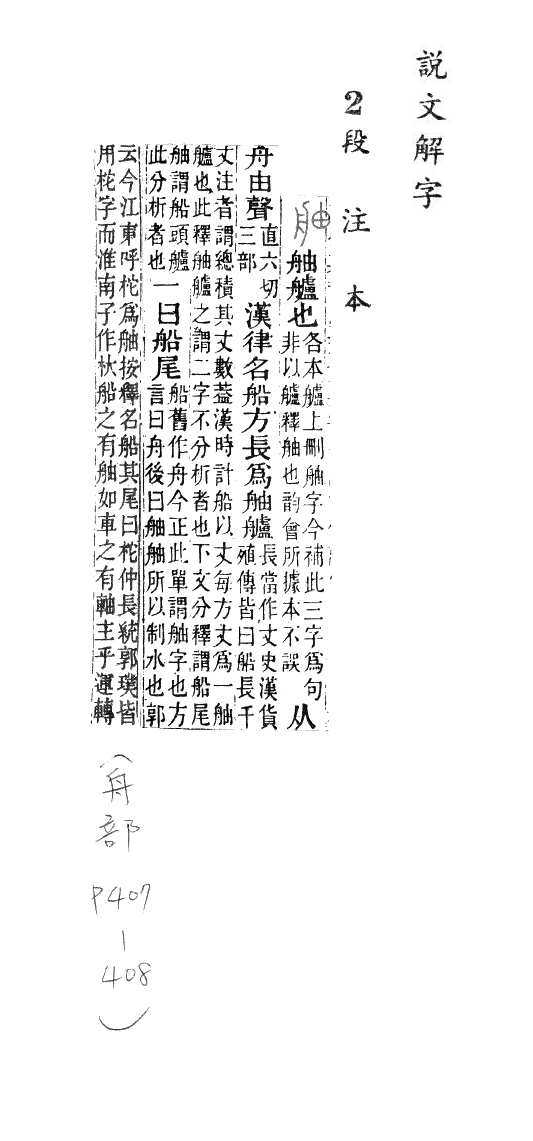 説文解字
2段注本
舳
舳艫也
各本艫上刪舳字今補此三字爲句
非以艫釋舳也韵會所據本不誤
从
舟由聲
直六切
三部
漢律名船方長爲舳艫
長當作丈史漢貨
殖傳皆曰船長千
丈注者謂總積其丈數葢漢時計船以丈每方丈爲一舳
艫也此釋舳艫之謂二字不分析者也下文分釋謂船尾
舳謂船頭艫
此分析者也
一曰船尾
船舊作舟今正此單謂舳字也方
言曰舟後曰舳舳所以制水也郭
云今江東呼柁爲舳按釋名船其尾曰柁仲長統郭璞皆
用柁字而淮南子作杕船之有舳如車之有軸主乎運轉
(舟部 P407-408)